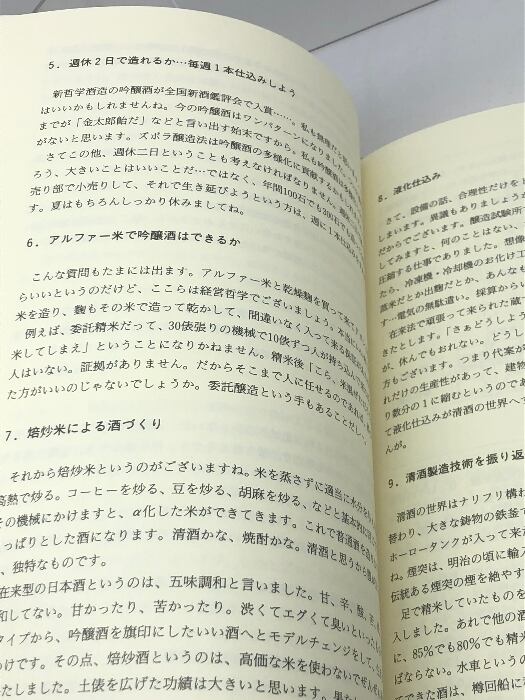 5. 週休2日で造れるか…毎週1本仕込みしよう
新哲学酒造の吟醸酒が全国新酒鑑評会で入賞……。私も
はいいかもしれませんね。今の吟醸酒はワンパターンになりました
までが「金太郎飴だ」などと言い出す始末ですから。私も吟醸
がないと思います。ズボラ醸造法は吟醸酒の多様化に貢献する
さてこの他、週休二日ということも考えなければなりません。
ろう、大きいことはいいことだ…ではなく、年間100石でも300石でも
売り部で小売りして、それで生き延びようという方は、週に1本仕込み
す。夏はもちろんしっかり休みましてね。
6. アルファー米で吟醸酒はできるか
こんな質問もたまには出ます。アルファー米と乾燥麹を買って来て
らいいというのだけど、ここらは経営哲学でございましょう。本
米を造り、麹もその米で造って乾かして、間違いなく入って来る
例えば、委託精米だって、30俵張りの機械で10俵ずつ3人が持ち込んで
米してしまえ」ということになりかねません。精米後「こら、米
人はいない。証拠がありません。だからそこまで人に任せるのであれば
た方がいいのじゃないでしょうか。委託醸造という手もあることだし。
7. 焙炒米による酒づくり
それから焙炒米というのがございますね。米を蒸さずに適当に水分を
高熱で炒る。コーヒーを炒る、豆を炒る、胡麻を炒る、などと基本的に
その機械にかけますと、α化した米ができてきます。これで普通酒を
っぱりとした酒になります。清酒かな、焼酎かな。清酒と思うから
、独特なものです。
在来型の日本酒というのは、五味調和と言いました。甘、辛、酸、苦
和してない。甘かったり、苦かったり。渋くてエグくて臭いといった
タイプから、吟醸酒を旗印にしたいい酒へとモデルチェンジをして
わけです。その点、焙炒酒というのは、高価な米を使わないで
たしました。土俵を広げた功績は大きいと思います。
8. 液化仕込み
さて、設備の話、合理性だけを
しまいます。異議もありましょうが
だからでございます。醸造試験所
してみますと、何のことはない、
圧縮する仕事でありました。想像
たら、冷凍機・冷却機のお化け工
蒸米だとか出麹だとか、あんなも
す…電気の無駄遣い。採算からい
在来法で頑張って来られた蔵
きたとします。「さぁどうしよう
が、休んでもおれない。どうし
方もございます。つまり代案が
れだけの生産性があって、建物
り数分の1に縮むというのであ
て液化仕込みが清酒の世界へす
んが。
9. 清酒製造技術を振り返
清酒の世界はナリフリ構わ
替わり、大きな鋳物の鉄釜で
ホーロータンクが入って来た
ね。煙突は、明治の頃に輸入
伝統ある煙突の煙を絶やす
足で精米していたものを
入しました。あれで他の酒
に、85%でも80%でも精米
ばならない。水車というの
のできた酒は、樽回船に